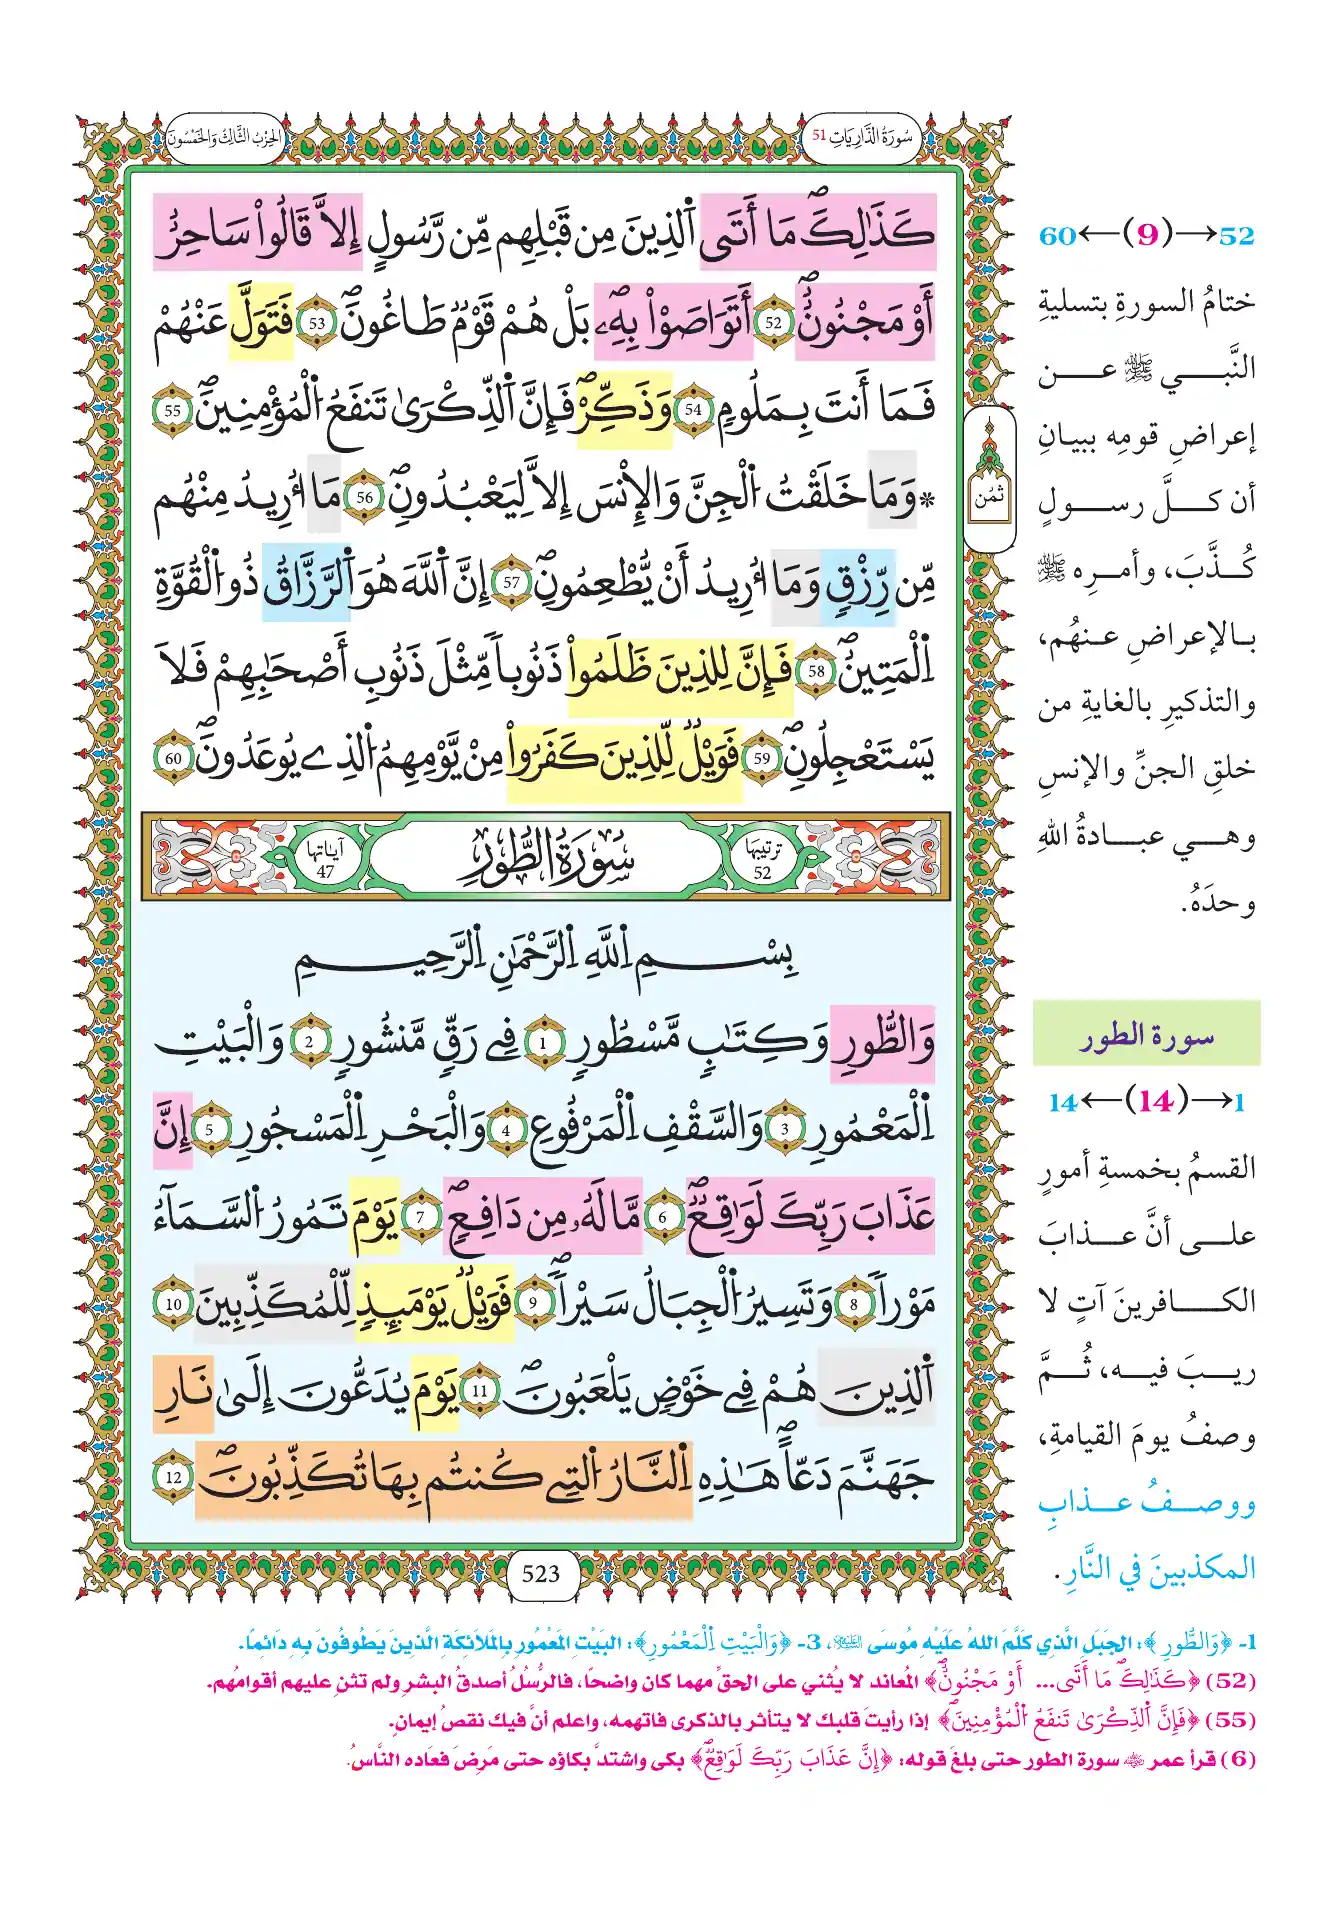 سُورَةُ الذَّارِيَاتِ 51
الحِزْبُ الثَّالِثُ وَالخَمْسُونَ
كَذَٰلِكَ مَا أَتَى اَ۬لذِينَ مِن قَبْلِهِم مِّن رَّسُولٍ إِلاَّ قَالُواْ سَاحِرٌ
أَوْ مَجْنُونٌۖ 52 أَتَوَاصَوْاْ بِهِۦۖ بَلْ هُمْ قَوْمٌ طَاغُونَۖ 53 فَتَوَلَّ عَنْهُمْ
فَمَا أَنتَ بِمَلُومٍ 54 وَذَكِّرْۖ فَإِنَّ اَ۬لذِّكْرَىٰ تَنفَعُ اُ۬لْمُؤْمِنِينَۖ 55
* وَمَا خَلَقْتُ اُ۬لْجِنَّ وَالِانْسَ إِلاَّ لِيَعْبُدُونِۖ 56 مَا أُرِيدُ مِنْهُم
مِّن رِّزْقٍ وَمَا أُرِيدُ أَنْ يُّطْعِمُونِۖ 57 إِنَّ اَ۬للَّهَ هُوَ اَ۬لرَّزَّاقُ ذُو اُ۬لْقُوَّةِ
اِ۬لْمَتِينُۖ 58 فَإِنَّ لِلذِينَ ظَلَمُواْ ذَنُوباً مِّثْلَ ذَنُوبِ أَصْحَٰبِهِمْ فَلاَ
يَسْتَعْجِلُونِۖ 59 فَوَيْلٌ لِّلذِينَ كَفَرُواْ مِنْ يَّوْمِهِمُ اُ۬لذِے يُوعَدُونَۖ 60
ثمُن
ترتيبها 52
سُورَةُ الطُّورِ
آياتها 47
بِسْمِ اِ۬للَّهِ اِ۬لرَّحْمَٰنِ اِ۬لرَّحِيمِ
وَالطُّورِ وَكِتَٰبٍ مَّسْطُورٍ 1 فِے رَقٍّ مَّنشُورٍ 2 وَالْبَيْتِ
اِ۬لْمَعْمُورِ 3 وَالسَّقْفِ اِ۬لْمَرْفُوعِ 4 وَالْبَحْرِ اِ۬لْمَسْجُورِ 5 إِنَّ
عَذَابَ رَبِّكَ لَوَٰقِعٌۖ 6 مَّا لَهُۥ مِن دَافِعٍۖ 7 يَوْمَ تَمُورُ اُ۬لسَّمَآءُ
مَوْراً 8 وَتَسِيرُ اُ۬لْجِبَالُ سَيْراًۖ 9 فَوَيْلٌ يَوْمَئِذٍ لِّلْمُكَذِّبِينَ 10
اَ۬لذِينَ هُمْ فِے خَوْضٍ يَلْعَبُونَۖ 11 يَوْمَ يُدَعُّونَ إِلَىٰ نَارِ
جَهَنَّمَ دَعّاًۖ هَٰذِهِ اِ۬لنَّارُ اُ۬لتِے كُنتُم بِهَا تُكَذِّبُونَۖ 12
523
52→(9)←60
ختامُ السورةِ بتسليةِ
النَّبي ﷺ عن
إعراضِ قومِه ببيانِ
أن كلَّ رسولٍ
كُذَّبَ، وأمرِه ﷺ
بالإعراضِ عنهُم،
والتذكيرِ بالغايةِ من
خلقِ الجنِّ والإنسِ
وهي عبادةُ اللهِ
وحدَهُ.
سورة الطور
1→(14)←14
القسمُ بخمسةِ أمورٍ
على أنَّ عذابَ
الكافرينَ آتٍ لا
ريبَ فيه، ثُمَّ
وصفُ يومَ القيامةِ،
ووصفُ عذابِ
المكذبينَ في النَّارِ.
1- ﴿وَالطُّورِ﴾: الجَبَلِ الَّذِي كَلَّمَ اللهُ عَلَيْهِ مُوسَى عليه السلام، 3- ﴿وَالْبَيْتِ اِ۬لْمَعْمُورِ﴾: البَيْتِ المَعْمُورِ بِالمَلَائِكَةِ الَّذِينَ يَطُوفُونَ بِهِ دَائِمًا.
(52) ﴿كَذَٰلِكَ مَا أَتَى... أَوْ مَجْنُونٌۖ﴾ المُعاند لا يُثني على الحقِّ مهما كان واضحًا، فالرُّسُلُ أصدقُ البشرِ ولم تثنِ عليهم أقوامُهم.
(55) ﴿فَإِنَّ اَ۬لذِّكْرَىٰ تَنفَعُ اُ۬لْمُؤْمِنِينَۖ﴾ إذا رأيتَ قلبك لا يتأثر بالذكرى فاتهمه، واعلم أنَّ فيك نقصُ إيمانٍ.
(6) قرأ عمر رضي الله عنه سورة الطور حتى بلغَ قوله: ﴿إِنَّ عَذَابَ رَبِّكَ لَوَٰقِعٌۖ﴾ بكى واشتدَّ بكاؤه حتى مَرِضَ فعَاده النَّاسُ.